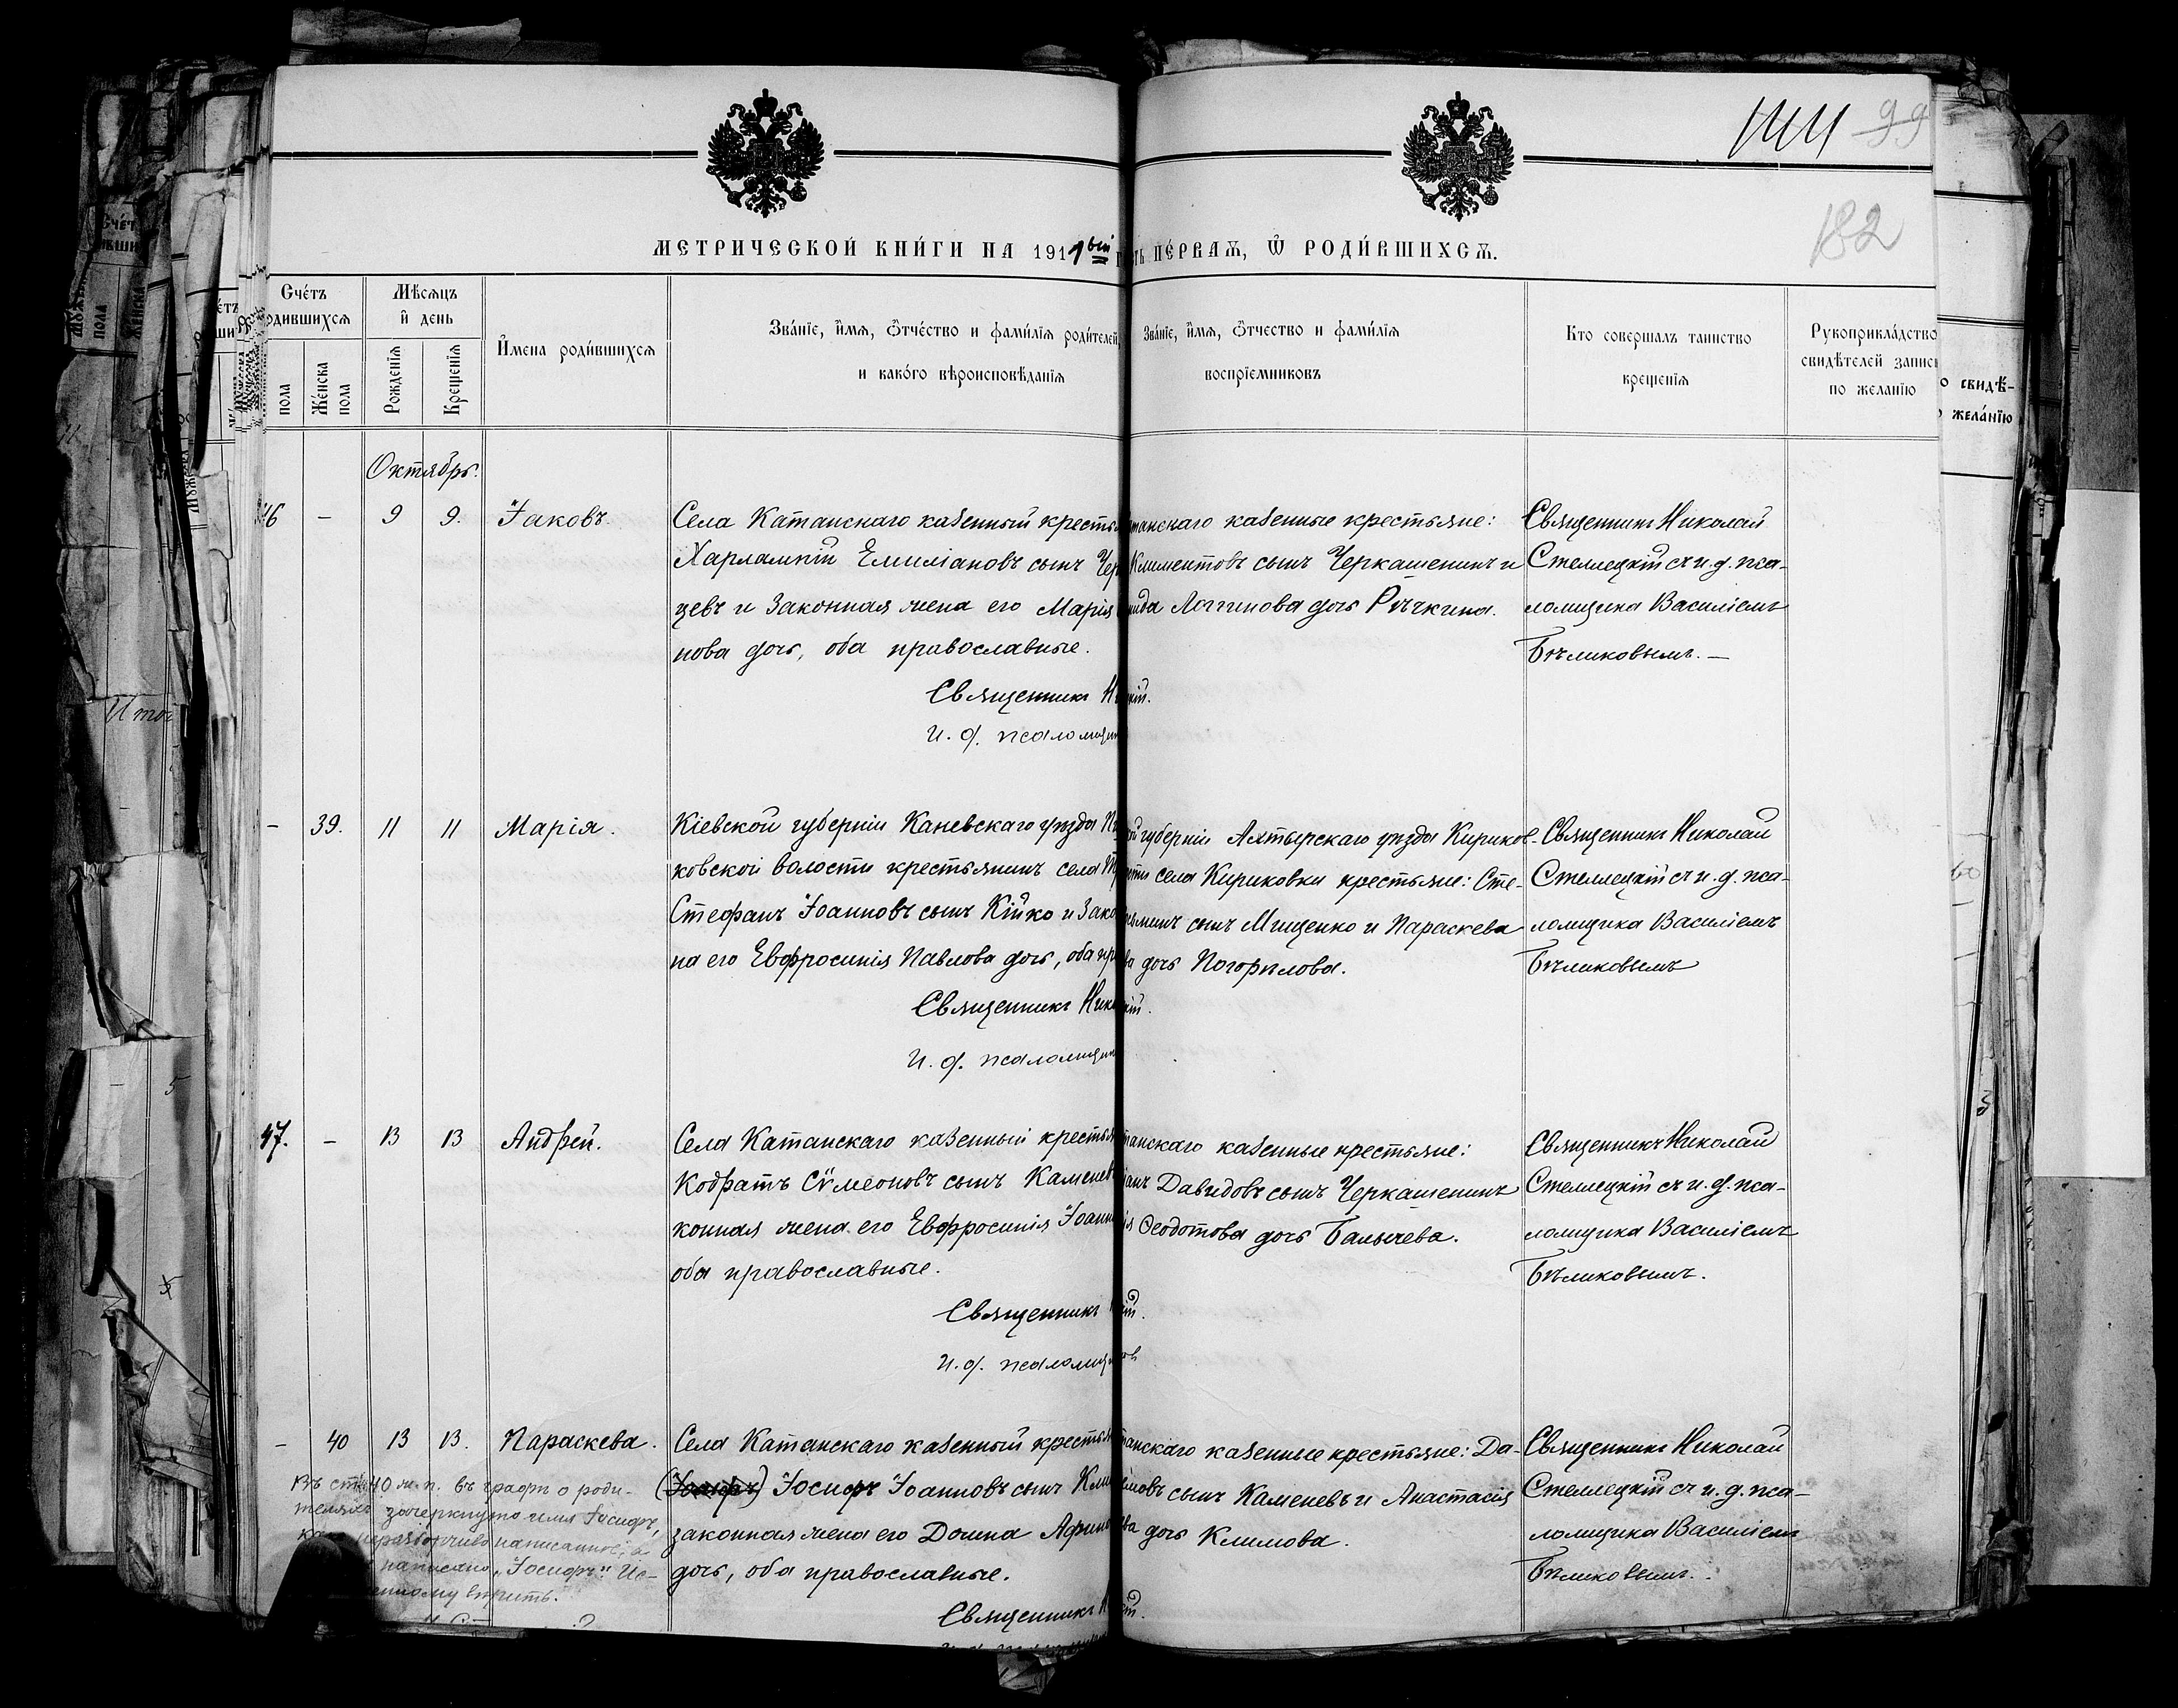 99
182
МЕТРИЧЕСКОЙ КНИ́ГИ НА 1911ый
ПЕ́РВАѦ, Ѿ РОДИ́ВШИХСѦ.
Сче́тъ
родившихсѧ
Мѣсѧцъ
и҆ день
пола
Же́нска пола
Рожденїѧ
Крещенїѧ
И҆мена роди́вшихсѧ
Зва́нїе, и҆́мѧ, ѻ҆́тчество и фами́лїѧ роди́телей,
и како́го вѣроисповѣ́данїѧ
Зва́нїе, и҆́мѧ, ѻ҆́тчество и фами́лїѧ
воспрїемниковъ
Кто совершалъ таинство
крещенїѧ
Рукоприкла́дство
свидѣтелей записи
по желанїю
Октябрь.
46 – 9 9. Іаковъ.
Села Катанскаго казенный кресть
Харлампій Емиліановъ сынъ Чер
цевъ и законная жена его Марія
нова дочь, оба православные.
Священникъ Н
И. д. псаломщи
танскаго казенные крестьяне:
Климентовъ сынъ Черкашенинъ и
нида Логгинова дочь Рѣчкина.
кій.
Священникъ Николай
Стеллецкій съ и. д. пса-
ломщика Василіемъ
Бѣликовымъ. –
– 39. 11 11 Марія.
Кіевской губерніи Каневскаго уѣзда
ковской волости крестьянинъ села
Стефанъ Іоанновъ сынъ Кійко и зако
на его Евфросинія Павлова дочь, оба пр
Священникъ Нико
И. д. псаломщи
ой губерніи Ахтырскаго уѣзда Кириков-
сти села Кириковки крестьяне: Сте-
сынъ Мищенко и Параскева
ва дочь Погорѣлова.
кій.
Священникъ Николай
Стеллецкій съ и. д. пса-
ломщика Василіемъ
Бѣликовымъ
47. – 13 13 Андрей.
Села Катанскаго казенный крестья
Кодратъ Сѵмеоновъ сынъ Каменев
конная жена его Евфросинія Іоанн
оба православные.
Священникъ
И. д. псаломщи
танскаго казенные крестьяне:
іанъ Давидовъ сынъ Черкашенинъ
ія Ѳеодотова дочь Балычева.
ій.
овъ
Священникъ Николай
Стеллецкій съ и. д. пса-
ломщика Василіемъ
Бѣликовымъ.
– 40 13 13. Параскева.
Села Катанскаго казенный крестья
(Іосифъ) Іосифъ Іоанновъ сынъ Клим
законная жена его Домна Афин
дочь, оба православные.
Священникъ Н
танскаго казенные крестьяне: Да-
имовъ сынъ Каменевъ и Анастасія
ва дочь Климова.
ій.
Священникъ Николай
Стеллецкій съ и. д. пса-
ломщика Василіемъ
Бѣликовымъ.
Въ ст. 40 ж. п. въ графѣ о роди-
теляхъ зачеркнуто имя Іосифъ,
неразборчиво написанное, а
написано „Іосифъ". Ис-
енному вѣрить.